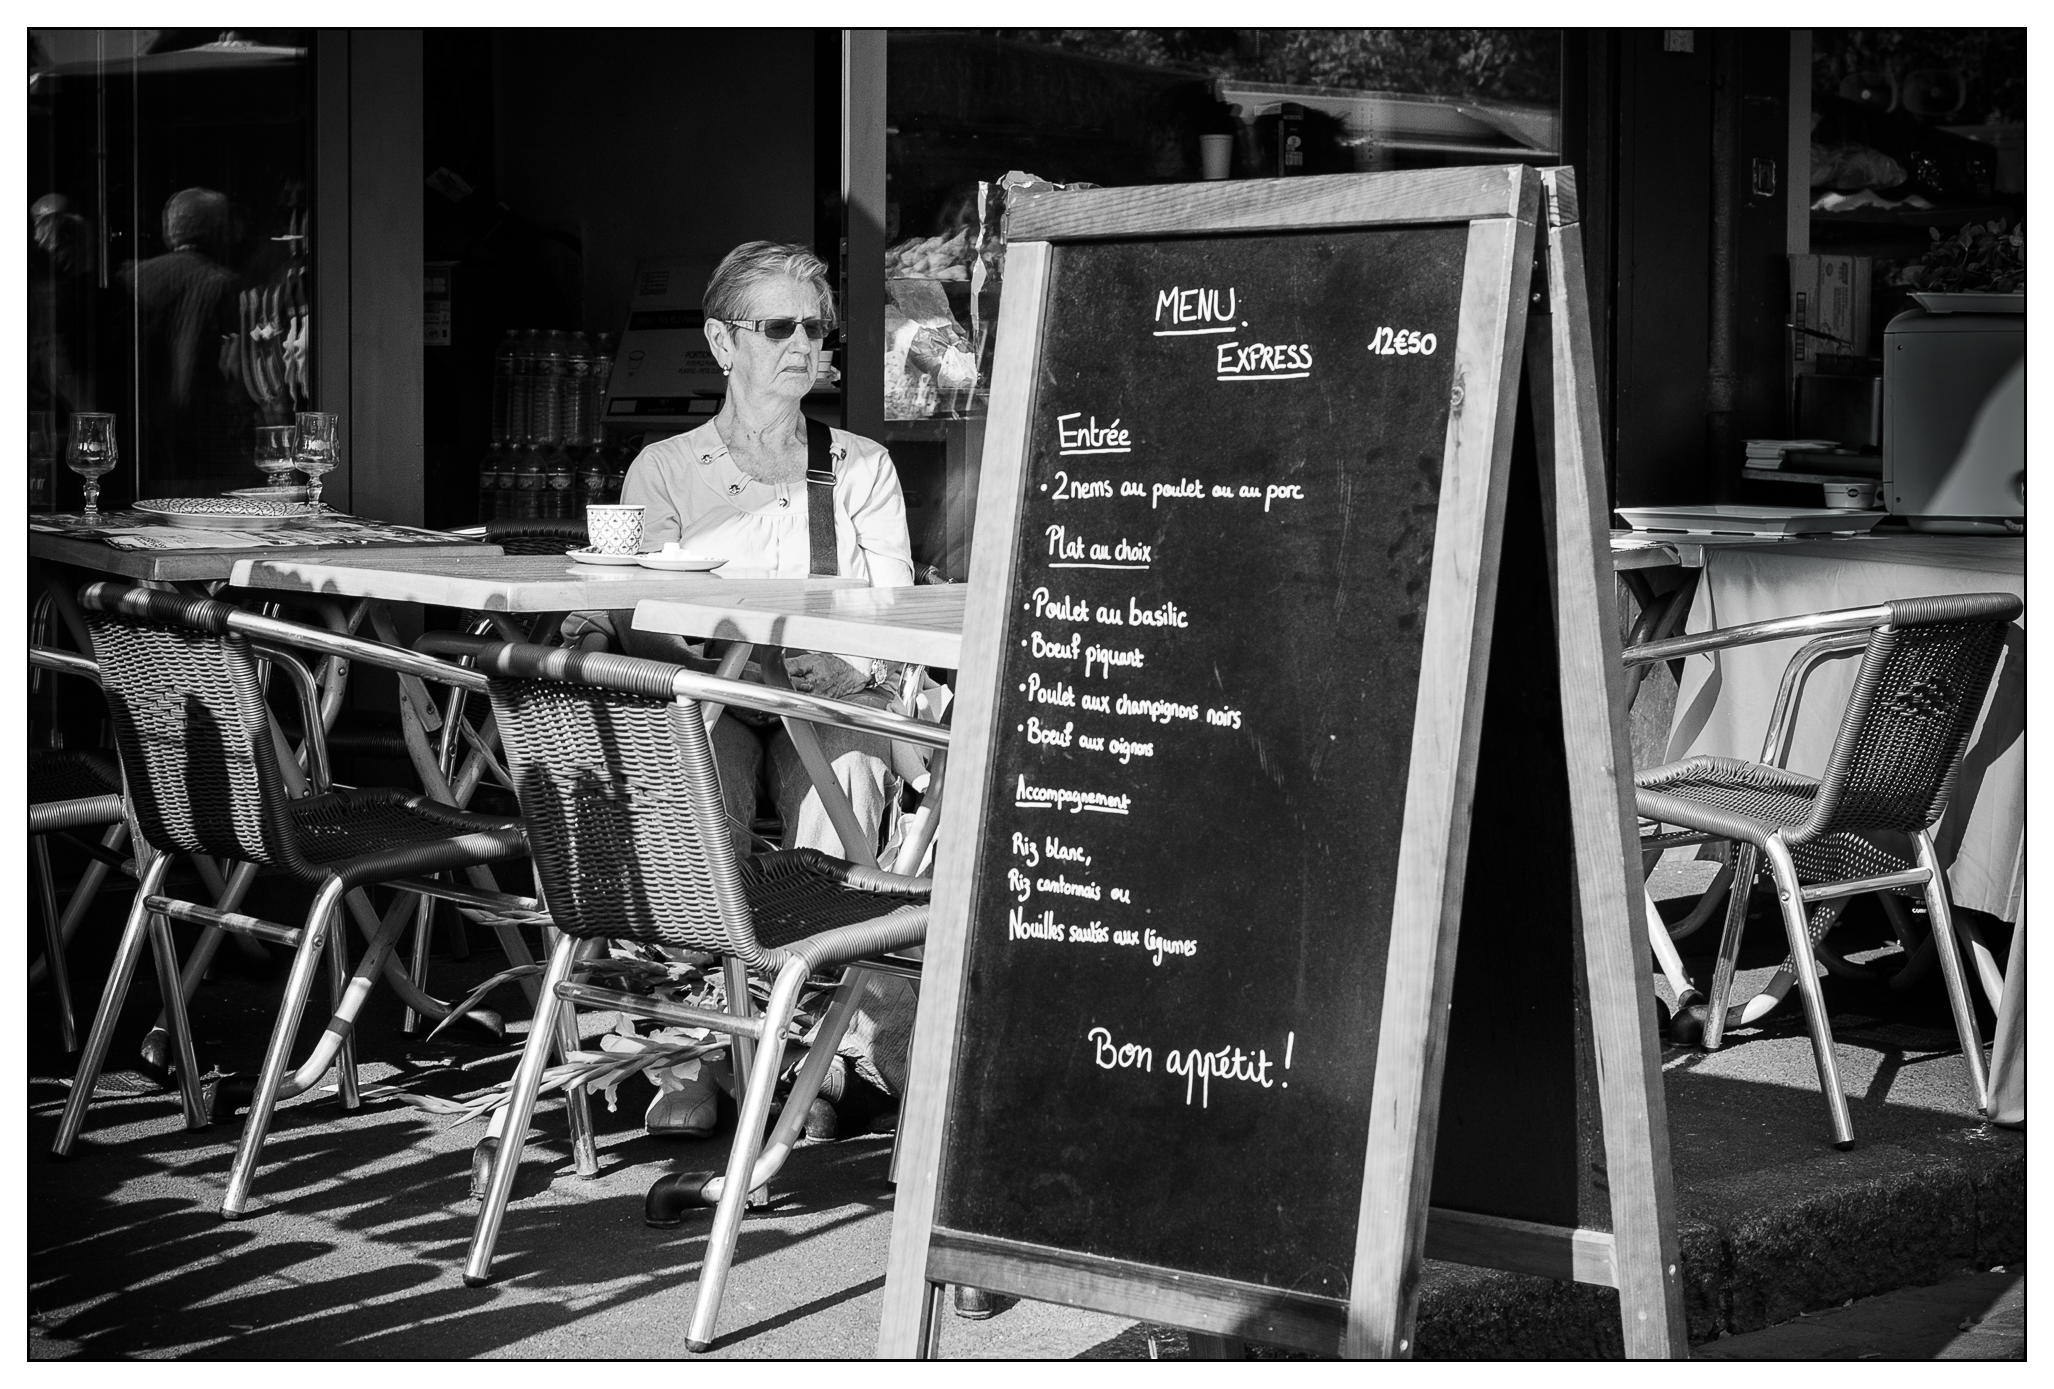 MENU.
EXPRESS
12€50
Entrée
• 2 nems au poulet ou au porc
Plat au choix
• Poulet au basilic
• Bœuf piquant
• Poulet aux champignons noirs
• Bœuf aux oignons
Accompagnement
Riz blanc,
Riz cantonnais ou
Nouilles sautés aux légumes
Bon appétit !